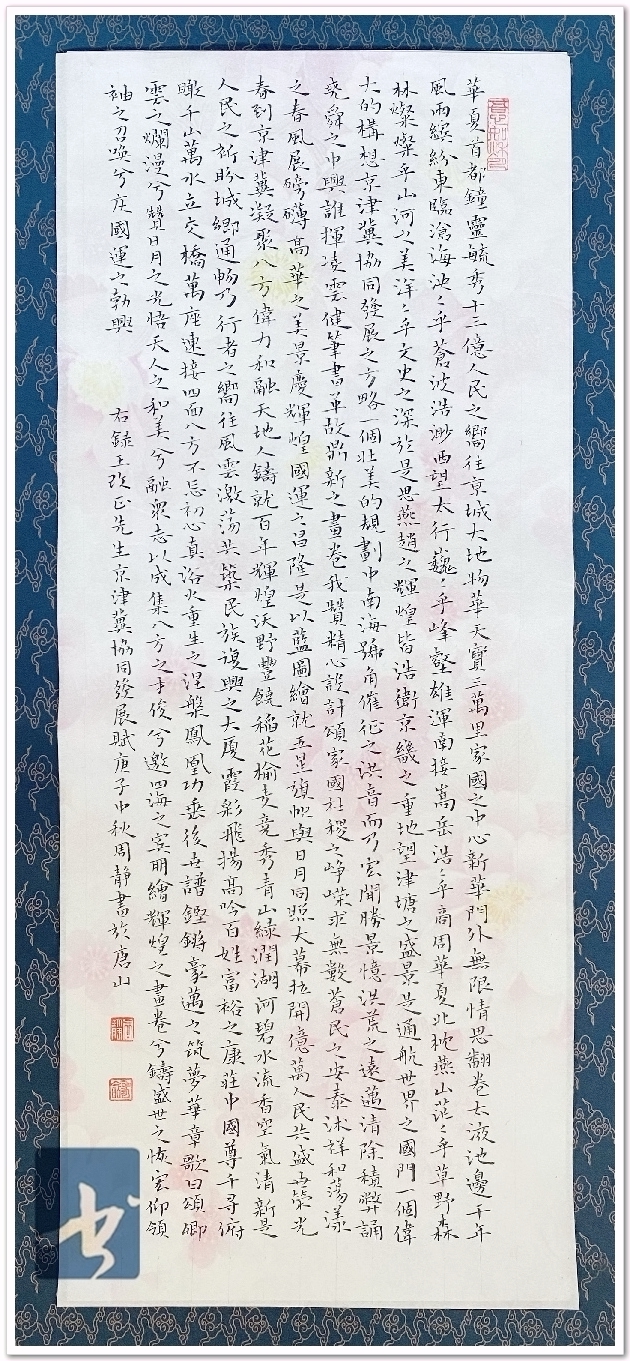 華夏首都鐘靈毓秀十三億人民之嚮往京城大地物華天寶三萬里家國之中心新華門外無限情思翻卷太液池邊千年
風雨繽紛東臨滄海泱々乎蒼波浩渺西望太行巍々乎峰壑雄渾南接嵩岳浩々乎商周華夏北枕燕山茫々乎草野森
林燦燦乎山河之美洋々乎文史之深於是思燕趙之輝煌皆浩衛京畿之重地望津塘之盛景是通航世界之國門一個偉
大的構想京津冀協同發展之方略一個壯美的規劃中南海號角催征之洪音而乃雲聞勝景憶洪荒之遠邁清除積弊誦
堯舜之中興誰揮凌雲健筆書革故鼎新之畫卷我贊精心設計頌家國社稷之崢嶸求無數蒼民之安泰沐祥和蕩漾
之春風展磅礴高華之美景慶輝煌國運之昌隆是以藍圖繪就五星旗幟與日月同照大幕拉開億萬人民共盛世榮光
春到京津冀凝聚八方偉力和融天地人鑄就百年輝煌沃野豐饒稻花榆麦竞秀青山緑潤湖河碧水流香空氣清新是
人民之祈盼城鄉通暢乃行者之嚮往風雲激荡共築民族復興之大厦霞彩飛揚高吟百姓富裕之康莊中國尊千尋俯
瞰千山萬水立交橋萬座連接四面八方不忘初心真浴火重生之涅槃鳳凰功垂後世譜鏗鏘豪邁之筑夢華章歌曰頌卿
雲之爛漫兮贊日月之光悟天人之和美兮融眾志以成集八方之才俊兮邀四海之宾朋繪輝煌之畫卷兮鑄盛世之恢宏仰領
袖之召喚兮慶國運之勃興
右録王改正先生京津冀協同發展賦庚子中秋周靜書於唐山
书